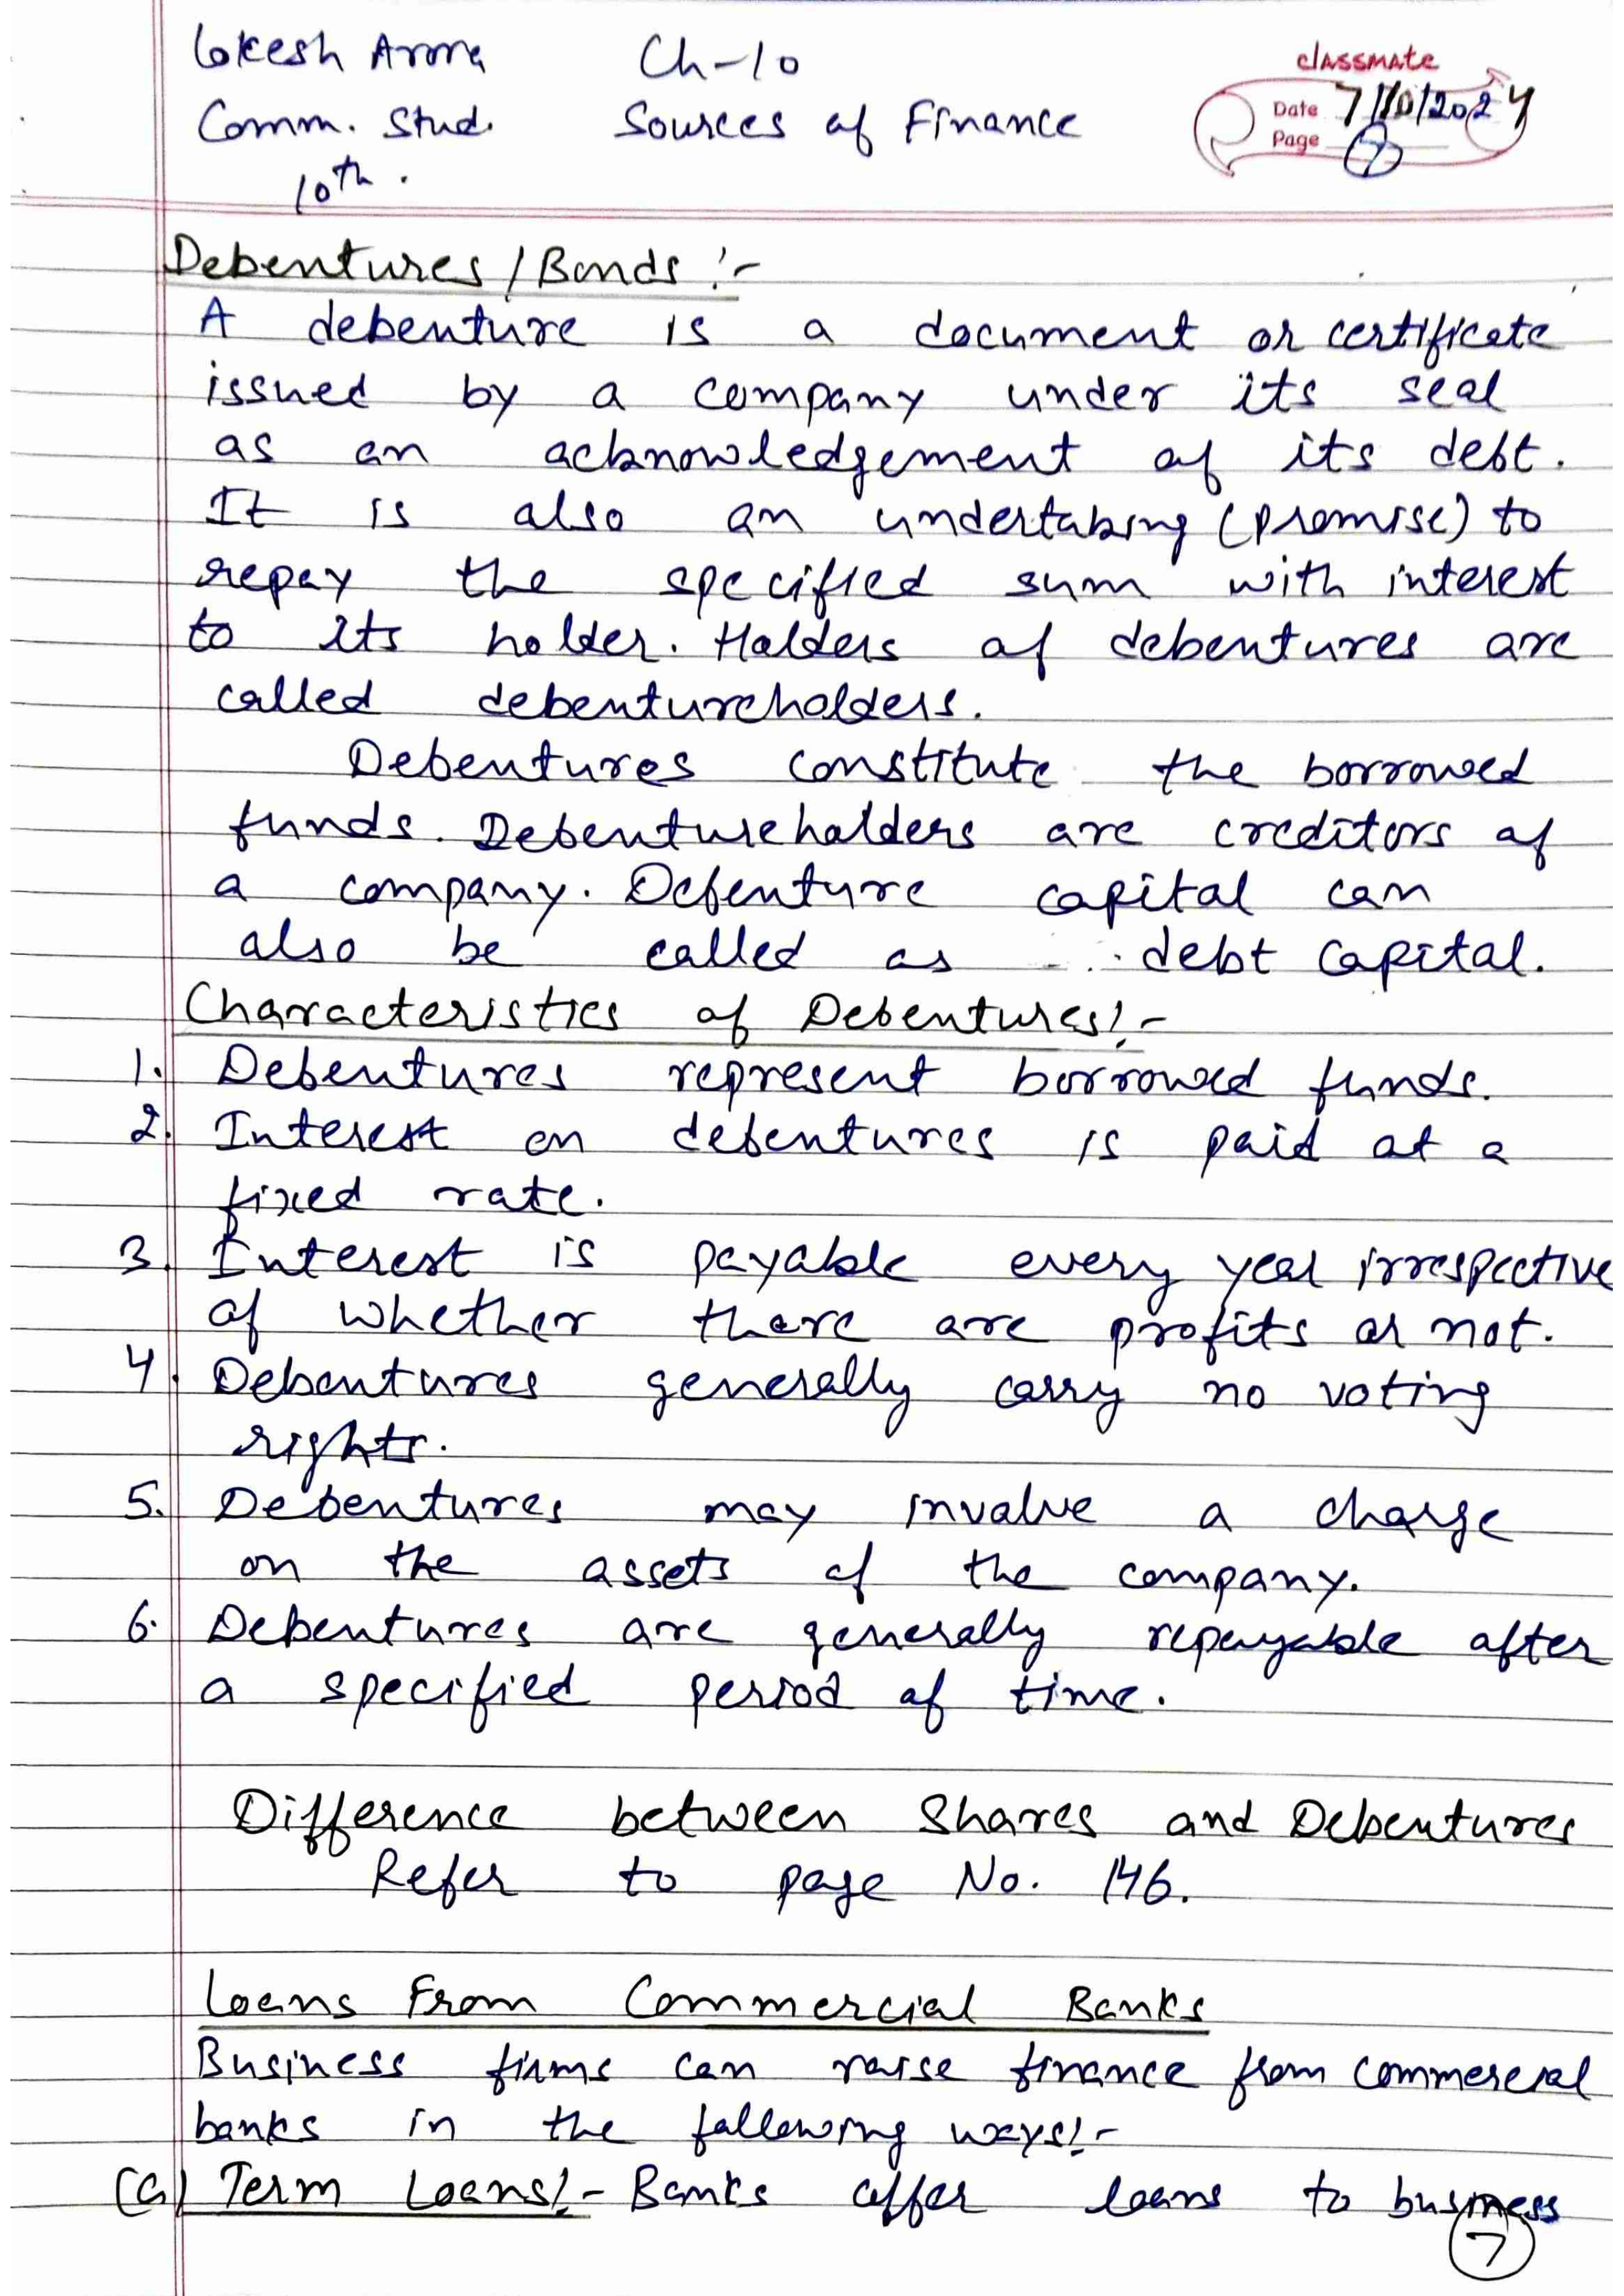 Lokesh Arora Ch-10
classmate
Date 7/10/2024
Comm. Stud. Sources of Finance
Page 7
10th.
Debentures/Bonds :-
A debenture is a document or certificate
issued by a company under its seal
as an acknowledgement of its debt.
It is also an undertaking (promise) to
repay the specified sum with interest
to its holder. Holders of debentures are
called debentureholders.
Debentures constitute the borrowed
funds. Debentureholders are creditors of
a company. Debenture capital can
also be called as debt capital.
Characteristics of Debentures:-
1. Debentures represent borrowed funds.
2. Interest on debentures is paid at a
fixed rate.
3. Interest is payable every year irrespective
of whether there are profits or not.
4. Debentures generally carry no voting
rights.
5. Debentures may involve a charge
on the assets of the company.
6. Debentures are generally repayable after
a specified period of time.
Difference between Shares and Debentures
Refer to page No. 146.
Loans From Commercial Banks
Business firms can raise finance from commercial
banks in the following ways:-
(a) Term Loans:- Banks offer loans to business
7